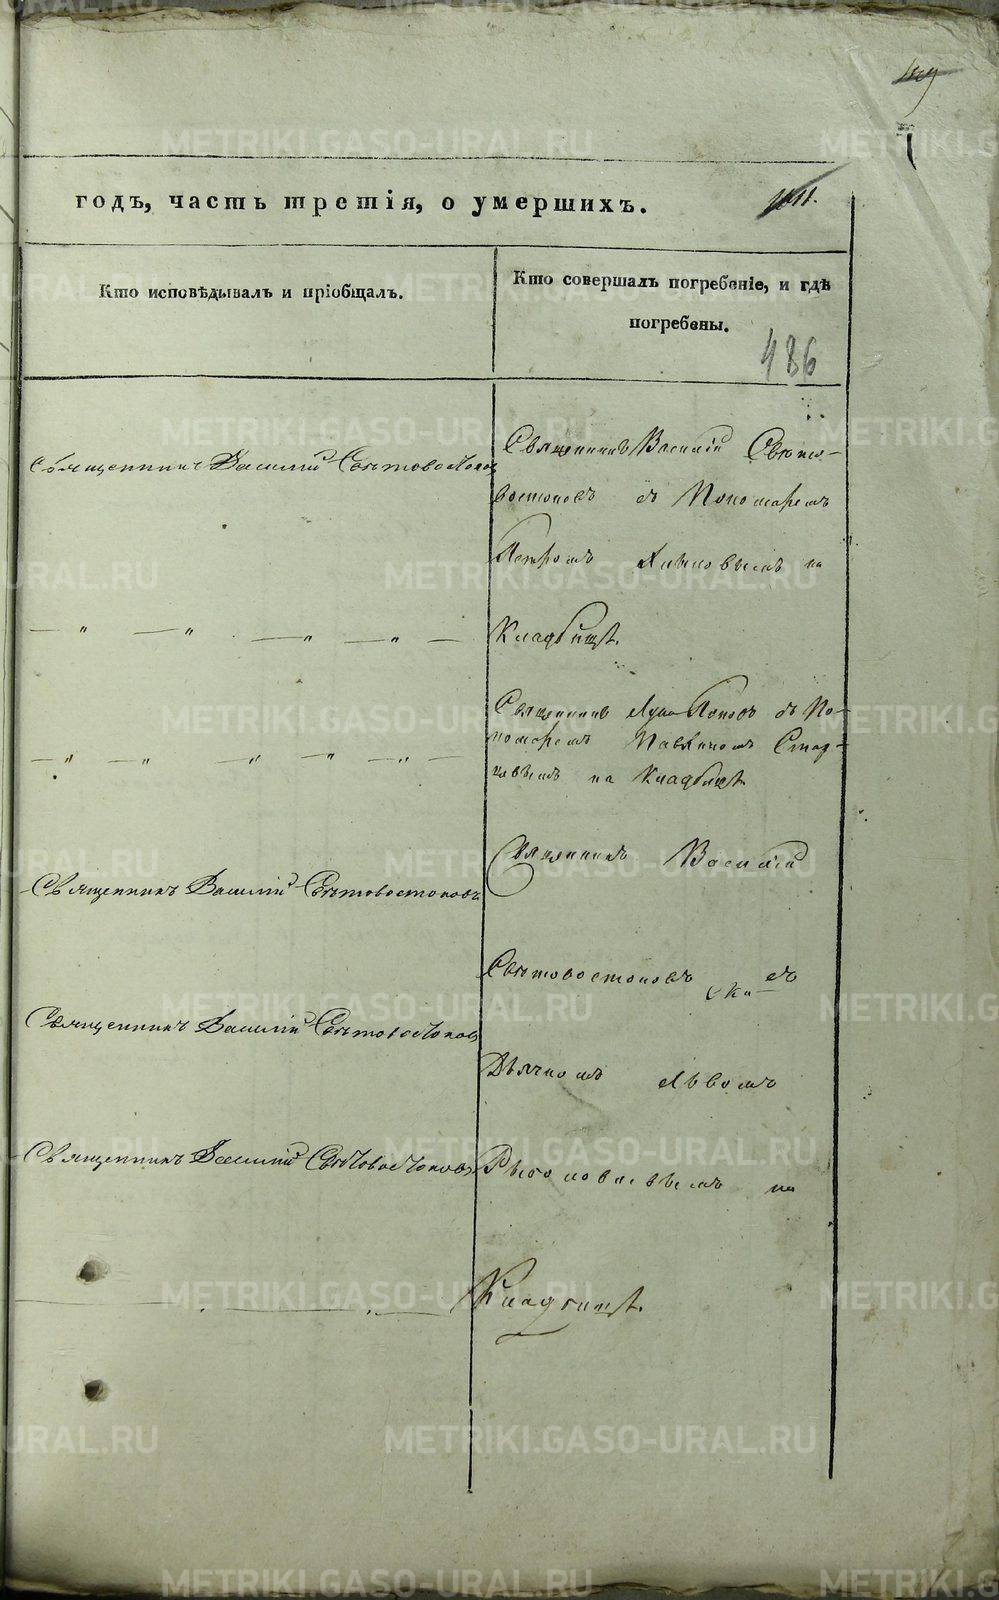 годъ, часть третія, о умершихъ.
Кто исповѣдывалъ и пріобщалъ.
Кто совершалъ погребеніе, и гдѣ
погребены.
486
Священникъ Василій Свѣтовостоковъ
Священникъ Василій Свѣто-
востоковъ съ Пономаремъ
Петромъ на
Кладбищѣ.
Священникъ Лука Поповъ съ По-
номаремъ Павлиномъ Стар-
цевымъ на Кладбищѣ
Священникъ Василій Свѣтовостоковъ
Священникъ Василій
Свѣтовостоковъ съ
Священникъ Василій Свѣтовостоковъ
Дьячкомъ Львомъ
Священникъ Василій Свѣтовостоковъ
на
Кладбищѣ.
METRIKI.GASO-URAL.RU